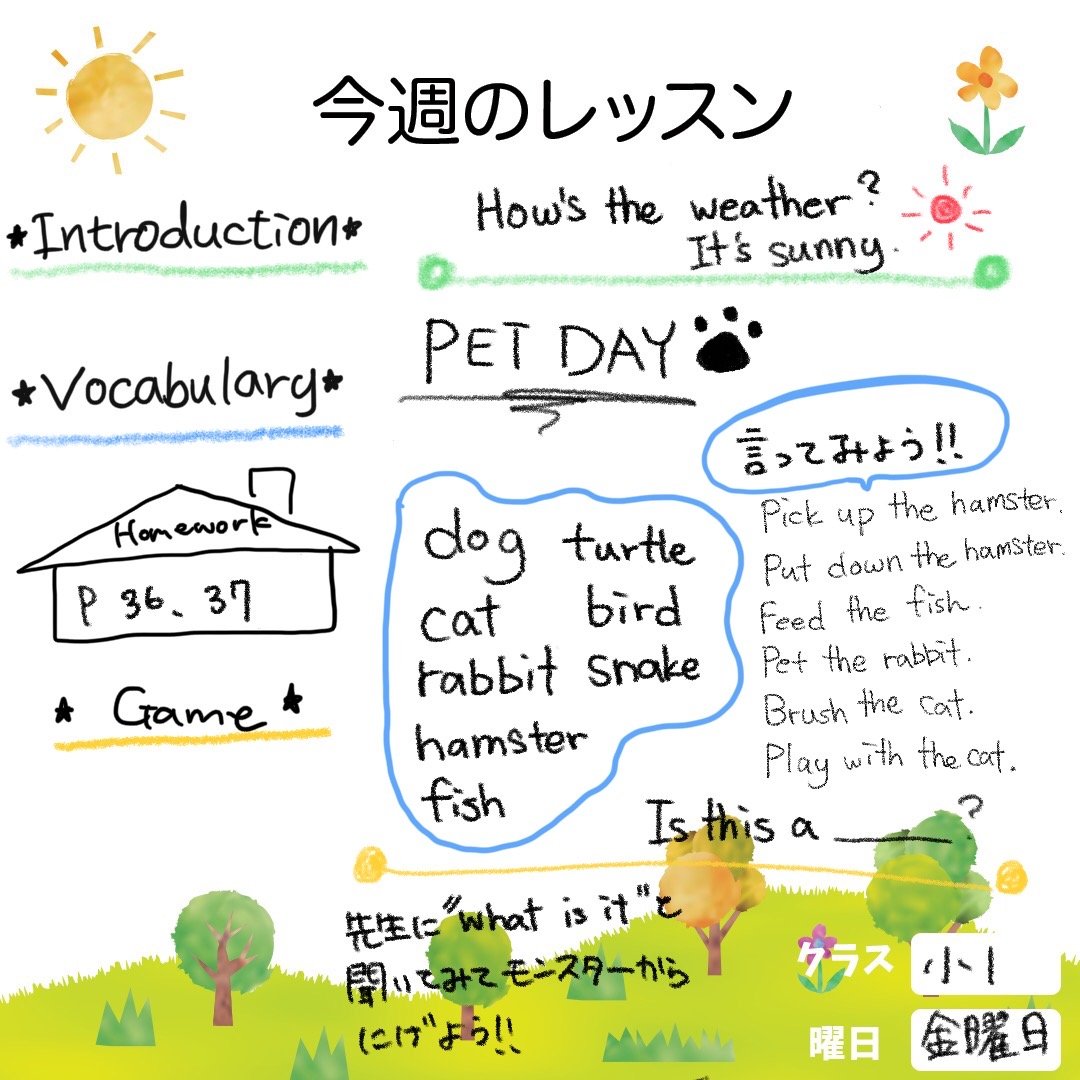 今週のレッスン
*Introduction*
How's the weather?
It's sunny.
*Vocabulary*
PET DAY
Homework
P 36、37
dog turtle
cat bird
rabbit snake
hamster
fish
言ってみよう!!
Pick up the hamster.
Put down the hamster.
Feed the fish.
Pet the rabbit.
Brush the cat.
Play with the cat.
Is this a ______?
* Game *
先生に"what is it"と
聞いてみてモンスターから
にげよう!!
クラス 小1
曜日 金曜日